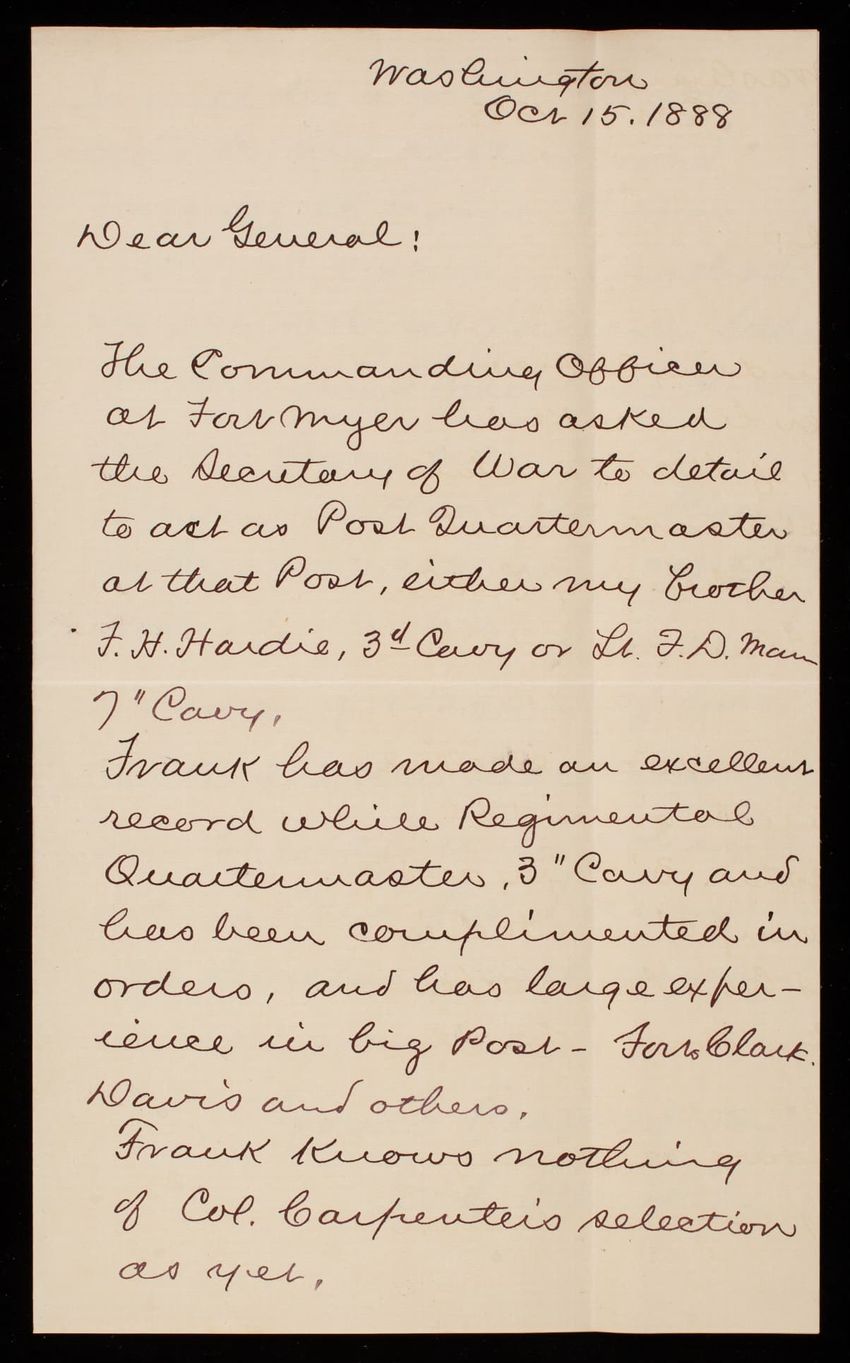 Washington
Oct 15. 1888
Dear General:
The Commanding Officer
at Fort Myer has asked
the Secretary of War to detail
to act as Post Quartermaster
at that Post, either my brother
F. H. Hardie, 3d Cavy or Lt. F. D. Mann
7" Cavy.
Frank has made an excellent
record while Regimental
Quartermaster, 3" Cavy and
has been complimented in
orders, and has large exper-
ience in big Post - Forts Clark.
Davis and others.
Frank knows nothing
of Col. Carpenter's selection
as yet.